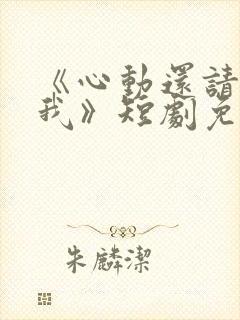 《心動還請
我》短劇免
朱麟潔